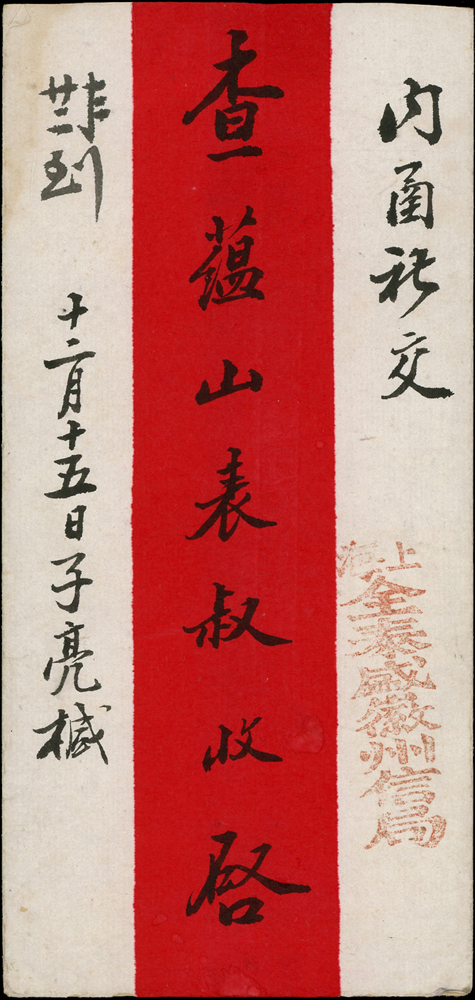 内函祈交
上海
全泰盛徽州信局
查蘊山表叔收啓
到
十二月十五日子亮椷